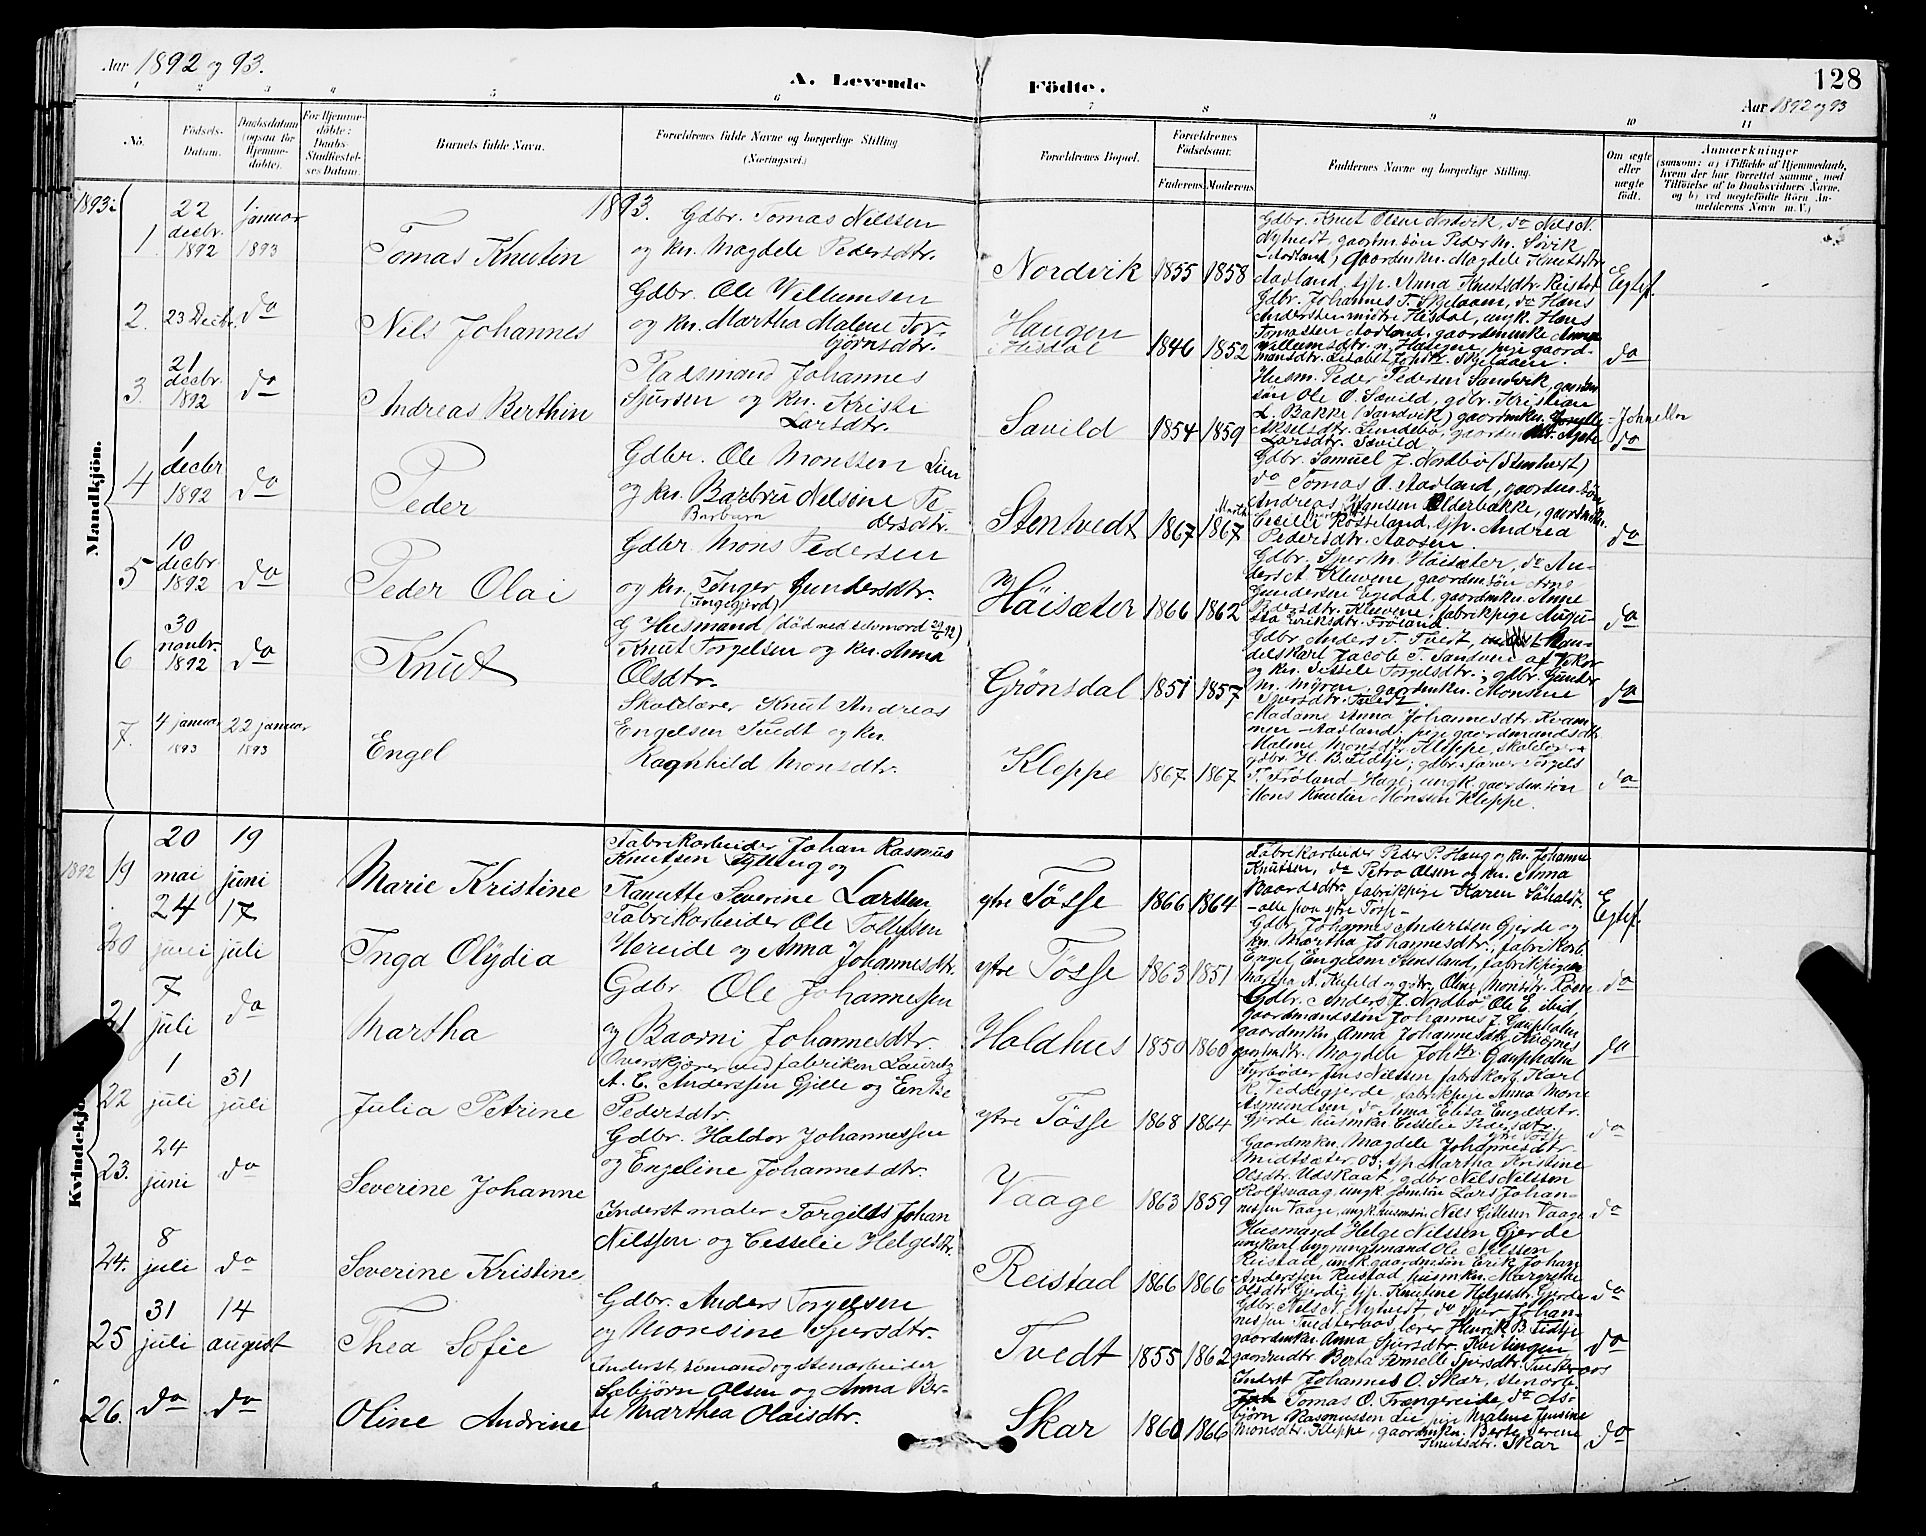 Aar 1892 og 93.
A. Levende Fødte.
128
Aar 1892 og 93
1 2 3 4 5 6 7 8 9 10 11
No.
Fødsels-Datum.
Daabsdatum (ogsaa for Hjemmedøbte).
For Hjemmedøbte: Daabs Stadfæstelses Datum.
Barnets fulde Navn.
Forældrenes fulde Navne og borgerlige Stilling (Næringsvei.)
Forældrenes Bopæl.
Forældrenes Fødselsaar.
Faderens. Moderens.
Faddernes Navne og borgerlige Stilling.
Om ægte eller uægte født.
Anmærkninger
(saasom: a) i Tilfælde af Hjemmedaab, hvem der har forrettet samme, med Tilføielse af to Daabsvidners Navne. og b) ved uægtefødte Børn Anmelderens Navn m. V.)
Mandkjøn.
1893:
1893.
1. 22 decbr. 1892
1. januar 1893
Tomas Knutin
Gdbr. Tomas Nilssen
og kn. Magdele Pedersdtr.
Nordvik 1855 1858
Gdbr. Knut Olsen Nordvik, do Nils N.
Nytvedt, gaardm.søn Peder M. Søvik
Aadland, gaardmkn. Magdele Knutsdtr.
Aadland, Anna Knutsdtr. Reistad
Egtef.
2. 23 Decbr. do
Nils Johannes
Gdbr. Ole Villumsen
og kn. Martha Malene Torbjørnsdtr.
Haugen i Hisdal 1846 1852
Gdbr. Johannes T. Skjelaaen, do Hans
Anderssen midtre Hisdal, ungk. Hans
Tomassen Aadland, gaardmenke Anna
Villumsdtr. n. Haugen, pige gaardmansdtr.
Skjelaaen.
do
3. 21 decbr. 1892 do
Andreas Berthin
Pladsmand Johannes
Sjursen og kn. Kristi
Larsdtr.
Savild 1854 1859
Husm. Peder Pedersen Sandvik,
søn Ole O. Savild, gdbr. Kristian
L. Bakke (Sandvik) gaardmkn.
Akselsdtr. Lundebø,
Larsdtr. Savild
do
4 1 decbr 1892 do
Peder
Gdbr. Ole Monssen Lien
og kn. Barbru Nelsine Pedersdtr.
Barbara
Stentvedt 1867 1867
Gdbr. Samuel J. Nordbø (Stentvedt)
do Tomas O. Aadland, gaardm.søn
Andreas Hanssen Olderbakke, gaardmkn.
Cecilie Røsseland, Andrea
Pedersdtr. Aaosen
do
5 10 decbr 1892 do
Peder Olai
Gdbr. Mons Pedersen
og kn. Inger Gundersdtr.
(Ingegjerd)
Høisæter 1866 1862
Gdbr. Sjur M. Høisæter, do Anders
A. Kleivene, gaardm.søn Arne
Gundersen Egedal, gaardmkn. Anne
Pedersdtr. Kleivene, fabrikpige Augusta
Eriksdtr. Frøland.
do
6 30 novbr. 1892 do
Knut
Husmand (død ved selvmord)
Knut Torgelsen og kn. Anna
Olsdtr.
Grønsdal 1851 1857
Gdbr. Anders T. Tvedt, Handelskarl
Jacob T. Sandven af Vikør
og kn. Sissele Torgelsdtr.; gdbr. Gunder
M. Myren; gaardmkn. Monsine
Sjursdtr. Tvedt.
do
7. 4 januar 1893
22 januar 1893
Engel
Skolelærer Knut Andreas
Engelsen Tvedt og kn.
Ragnhild Monsdtr.
Kleppe 1867 1867
Madame Anna Johannesdtr. Kvammen
Aadland, pige gaardmandsdtr.
Malene Monsdtr. Kleppe, skolelær.
gdbr. H. B. Tidtje; gdbr.fører Torgels
T. Frøland Hage; ungk. gaardm.søn
Mons Knutin Monsen Kleppe.
do
Kvindekjøn.
1892
19 20 mai 19 juni
Marie Kristine
Fabrikarbeider Johan Rasmus
Knutsen Tyssing og
Kanutte Severine Larssen
ytre Tøsse 1866 1864
Fabrikarbeider Peder P. Haug og kn. Johanne
Knutsen, do Petro Olsen og kn. Anna
Baardsdtr. fabrikpige Karen
-alle paa ytre Tøsse-
Egtef.
20 24 juni 17 juli
Inga Olydia
Fabrikarbeider Ole Tollefsen
Hereide og Anna Johannesdtr.
ytre Tøsse 1863 1851
Gdbr. Johannes Andersen Gjerde og
kn. Martha Johannesdtr.; fabrikarb.
Engel Engelsen Hensland, fabrikpigen
Martha A. Oline Monsdtr. Roen
do
21 7 juli do
Martha
Gdbr. Ole Johannessen
og Baarni Johannesdtr.
Holdhus 1850 1860
Gdbr. Anders J. Nordbø Ole E. ibid,
gaardmandssøn Johannes J. Gaupholm
gaardmkn. Anna Johannesdtr.
Magdele Gaupholm
do
22 1 juli 31 juli
Julia Petrine
Overskjærer ved fabriken Lauritz
A. C. Anderssen Gjelle og Emilie
Pedersdtr.
ytre Tøsse 1868 1864
Fyrbøder Jens Nilssen fabrikarb. Karl
R. Teddegjerde, fabrikpige Anna Marie
Asmundsen, do Anna Elisa Engelsdtr.
Gjerde husmkn. Cesselie Pedersdtr.
ytre Tøsse
do
23. 24 juni do
Severine Johanne
Gdbr. Haldor Johannessen
og Engeline Johannesdtr.
Vaage 1863 1859
Gaardmkn. Magdele Johannesdtr.
Midtsæter, Os; Martha Kristine
Olsdtr. Udskaat, gdbr Nils Nilssen
Rolfsvaag, ungk. Lars Johannessen
Vaage, ungk. husmsøn Nils Gittesen Vaage
do
24. 8 juli do
Severine Kristine
Inderst maler Torgils Johan
Nilssen og Cesselie Helgesdtr.
Reistad 1866 1866
Husmand Helge Nilssen Gjerde
ungkarl bygningsmand Ole Nilssen
Reistad, ungk. gaardmsøn Erik Johan
Anderssen Reistad, husmkn. Margrethe
Olsdtr. Gjerde, Knutine Helgesdtr. Gjerde
do
25 31 juli 14 august
Thea Sofie
Gdbr. Anders Torgelsen
og Monsine Sjursdtr.
Tvedt 1855 1862
Gdbr. Nils N. Nytvedt do Sjur Johannessen
Tvedteraas, lærer Henrik B. Tidtje
gaardmkn. Anna Sjursdtr. Kvitingen
gaardmdtr. Berta Pernelle Sjursdtr. Tvedteraas
do
26. do do
Oline Andrine
Inderst sømand og stenarbeider
Sæbjørn Olsen og Anna Berte
Marthea Olaisdtr.
Skar 1860 1866
Inderst Johannes O. Skar, stenarb.
Tomas O. Trængereide, do Asbjørn
Rasmussen Lie, pige Malene Jensine
Monsdtr. Kleppe, gaardmkn. Berte Serine
Knutsdtr. Skar
do